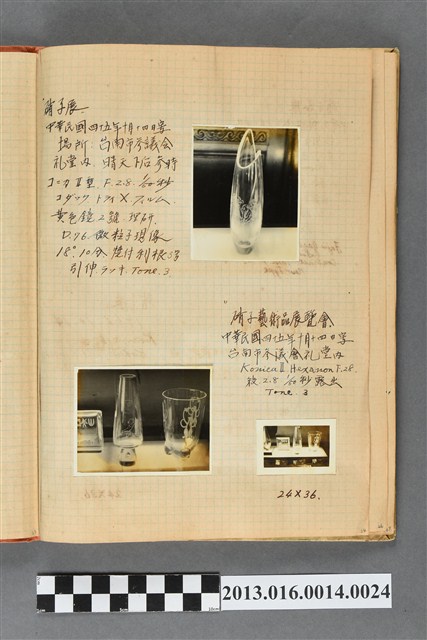 硝子展
中華民國四十五年十月十四日寫
場所 台南市參議會
礼堂內 晴天下后参時
コニカⅡ型 F2.8
コダック トライXフィルム
黄色鏡2號
D.76 微粒子現像
18° 10分
引伸 Tone. 3
硝子藝術品展覽會
中華民國四十五年十月十四日寫
台南市参議會礼堂內
Konica Ⅱ Hexanon F.2.8
Tone. 3
24X36.
2013.016.0014.0024